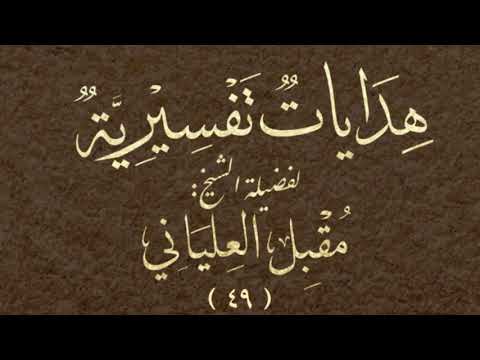 هِدَايَاتٌ تَفْسِيْرِيَّةٌ
لفضيلة الشيخ:
مُقْبِل العِليَاني
( ٤٩ )